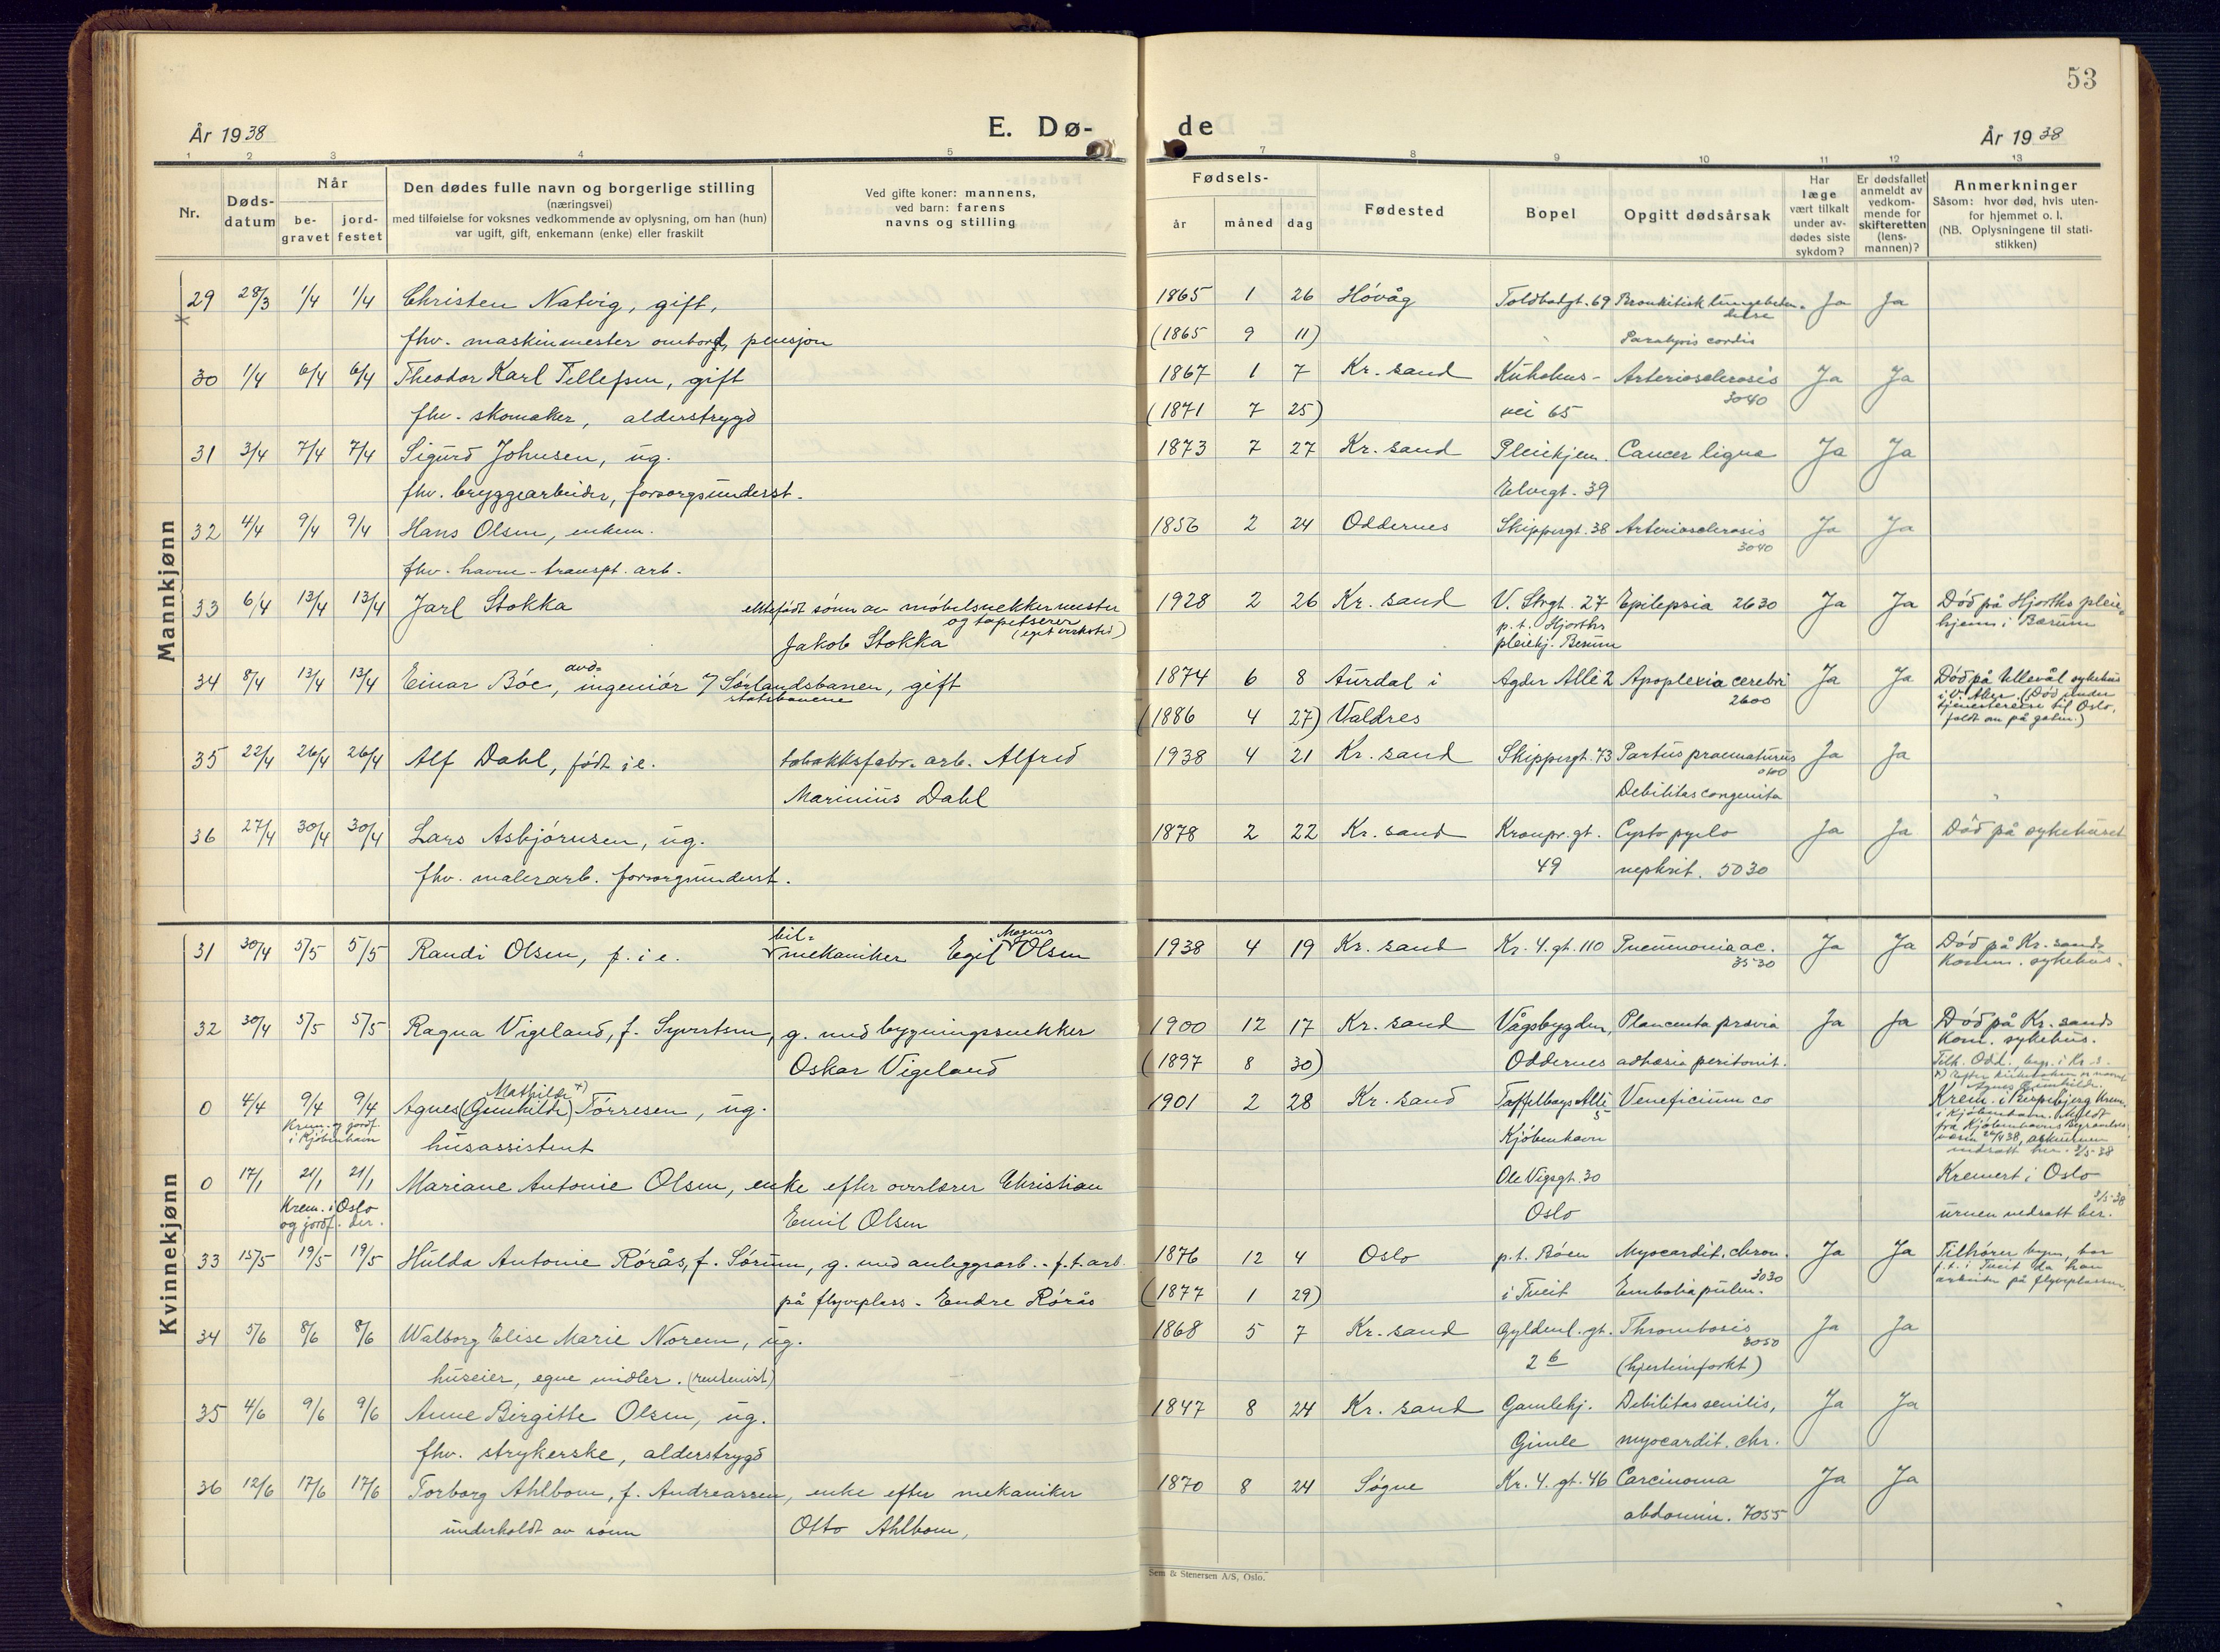 53
År 1938
E. Dø-
de
År 1938
1 2 3 4 5
7 8 9 10 11 12 13
Nr.
Døds-
datum
Når
be-
gravet
jord-
festet
Den dødes fulle navn og borgerlige stilling
(næringsvei)
med tilføielse for voksnes vedkommende av oplysning, om han (hun)
var ugift, gift, enkemann (enke) eller fraskilt
Ved gifte koner: mannens,
ved barn: farens
navns og stilling
Fødsels-
år måned dag
Fødested
Bopel
Opgitt dødsårsak
Har
læge
vært tilkalt
under av-
dødes siste
sykdom?
Er dødsfallet
anmeldt av
vedkom-
mende for
skifteretten
(lens-
mannen)?
Anmerkninger
Såsom: hvor død, hvis uten-
for hjemmet o. l.
(NB. Oplysningene til stati-
stikken)
Mannkjønn
29 28/3 1/4 1/4 Christen Natvig, gift, 1865 1 26 Høvåg Toldbodgt. 69 Ja Ja
fhv. maskinmester ombord, pensjon (1865 9 11) cordis
30 1/4 6/4 6/4 Theodor Karl Tellefsen, gift 1867 1 7 Kr. sand Kuholms- Arteriosclerosis Ja Ja
3040
fhv. skomaker, alderstrygd (1871 7 25) vei 65
31 3/4 7/4 7/4 Sigurd Johnsen, ug. 1873 7 27 Kr. sand Pleiehjem. Cancer ligva Ja Ja
fhv. bryggearbeider, forsorgsunderst. Elvegt. 39
32 4/4 9/4 9/4 Hans Olsen, enkem. 1856 2 24 Oddernes Skippergt. 38 Arteriosclerosis Ja Ja
3040
fhv. havne-transpt. arb.
33 6/4 13/4 13/4 Jarl Stokka ektefødt sønn av møbelsnekkermester 1928 2 26 Kr. sand V. Strgt. 27 Epilepsia 2630 Ja Ja Død på Hjorths pleie-
og tapetserer (eget verksted) p.t. Hjorths hjem i Bærum
Jakob Stokka pleiehj. Berum
34 8/4 13/4 13/4 Einar Bøe, avd. ingeniør v/ Sørlandsbanen, gift 1874 6 8 Aurdal i Agder Allé 2 Apoplexia cerebri Ja Ja Død på Ullevål sykehus
statsbanene 2600 i V. Aker. (Død under
(1886 4 27) Valdres tjenestereise til Oslo,
falt om på gaten.)
35 22/4 26/4 26/4 Alf Dahl, født i e. tobakksfabr. arb. Alfred 1938 4 21 Kr. sand Skippergt. 73 Partus praematurus Ja Ja
Marinius Dahl Debilitas congenita
36 27/4 30/4 30/4 Lars Asbjørnsen, ug. 1878 2 22 Kr. sand Kronpr. gt. Cysto pyelo Ja Ja Død på sykehuset
fhv. malerarb. forsorgsunderst. 49 nephrit. 5030
Kvinnekjønn
31 30/4 5/5 5/5 Randi Olsen, f. i e. bil-mekaniker Egil Magnus Olsen 1938 4 19 Kr. sand Kr. 4. gt. 110 Pneumonia ac. Ja Ja Død på Kr. sands
3530 Komm. sykehus.
32 30/4 5/5 5/5 Ragna Vigeland, f. Syvertsen, g. med bygningssnekker 1900 12 17 Kr. sand Vågsbygden, Plancenta prævia Ja Ja Død på Kr. sands
Kom. sykehus.
Oskar Vigeland (1897 8 30) Oddernes peritonit. Tilh. Odd. begr. i Kr. s.
0 4/4 9/4 9/4 Agnes (Gunhilde) Mathilde x) Tørresen, ug. 1901 2 28 Kr. sand Taffelbays Allé 5 Veneficium co Krem. i Bispebjerg Krem.
Krem. og jordf. i Kjøbenhavn i Kjøbenhavn. Meldt
husassistent Kjøbenhavn fra Kjøbenhavns
nedsatt her 3/5-38
0 17/1 21/1 21/1 Mariane Antonie Olsen, enke efter overlærer Christian Ole Vigsgt. 30 Kremert i Oslo
Krem. i Oslo og jordf. der. Emil Olsen Oslo urnen nedsatt her. 3/5-38
33 15/5 19/5 19/5 Hulda Antonie Rørås, f. Sørum, g. med anleggsarb. - f.t. arb. 1876 12 4 Oslo p.t. Bøen Myocardit. chron. Ja Ja Tilhører byen, bor
3030 f.t. i Tveit da han
på flyveplass - Endre Rørås (1877 1 29) i Tveit Embolia pulm. arbeider på flyveplassen.
34 5/6 8/6 8/6 Walborg Elise Marie Norem, ug. 1868 5 7 Kr. sand Gyldenl. gt. Thrombosis Ja Ja
3050
huseier, egne midler. (rentenist) 2 b (hjerteinfarkt)
35 4/6 9/6 9/6 Anne Birgitte Olsen, ug. 1847 8 24 Kr. sand Gamlehj. Debilitas senilis, Ja Ja
fhv. strykerske, alderstrygd Gimle myocardit. chr.
36 12/6 17/6 17/6 Torborg Ahlbom, f. Andreassen, enke efter mekaniker 1870 8 24 Søgne Kr. 4. gt. 46 Carcinoma Ja Ja
underholdt av sønn Otto Ahlbom, abdomin. 7055
Sem & Stenersen A/S, Oslo.